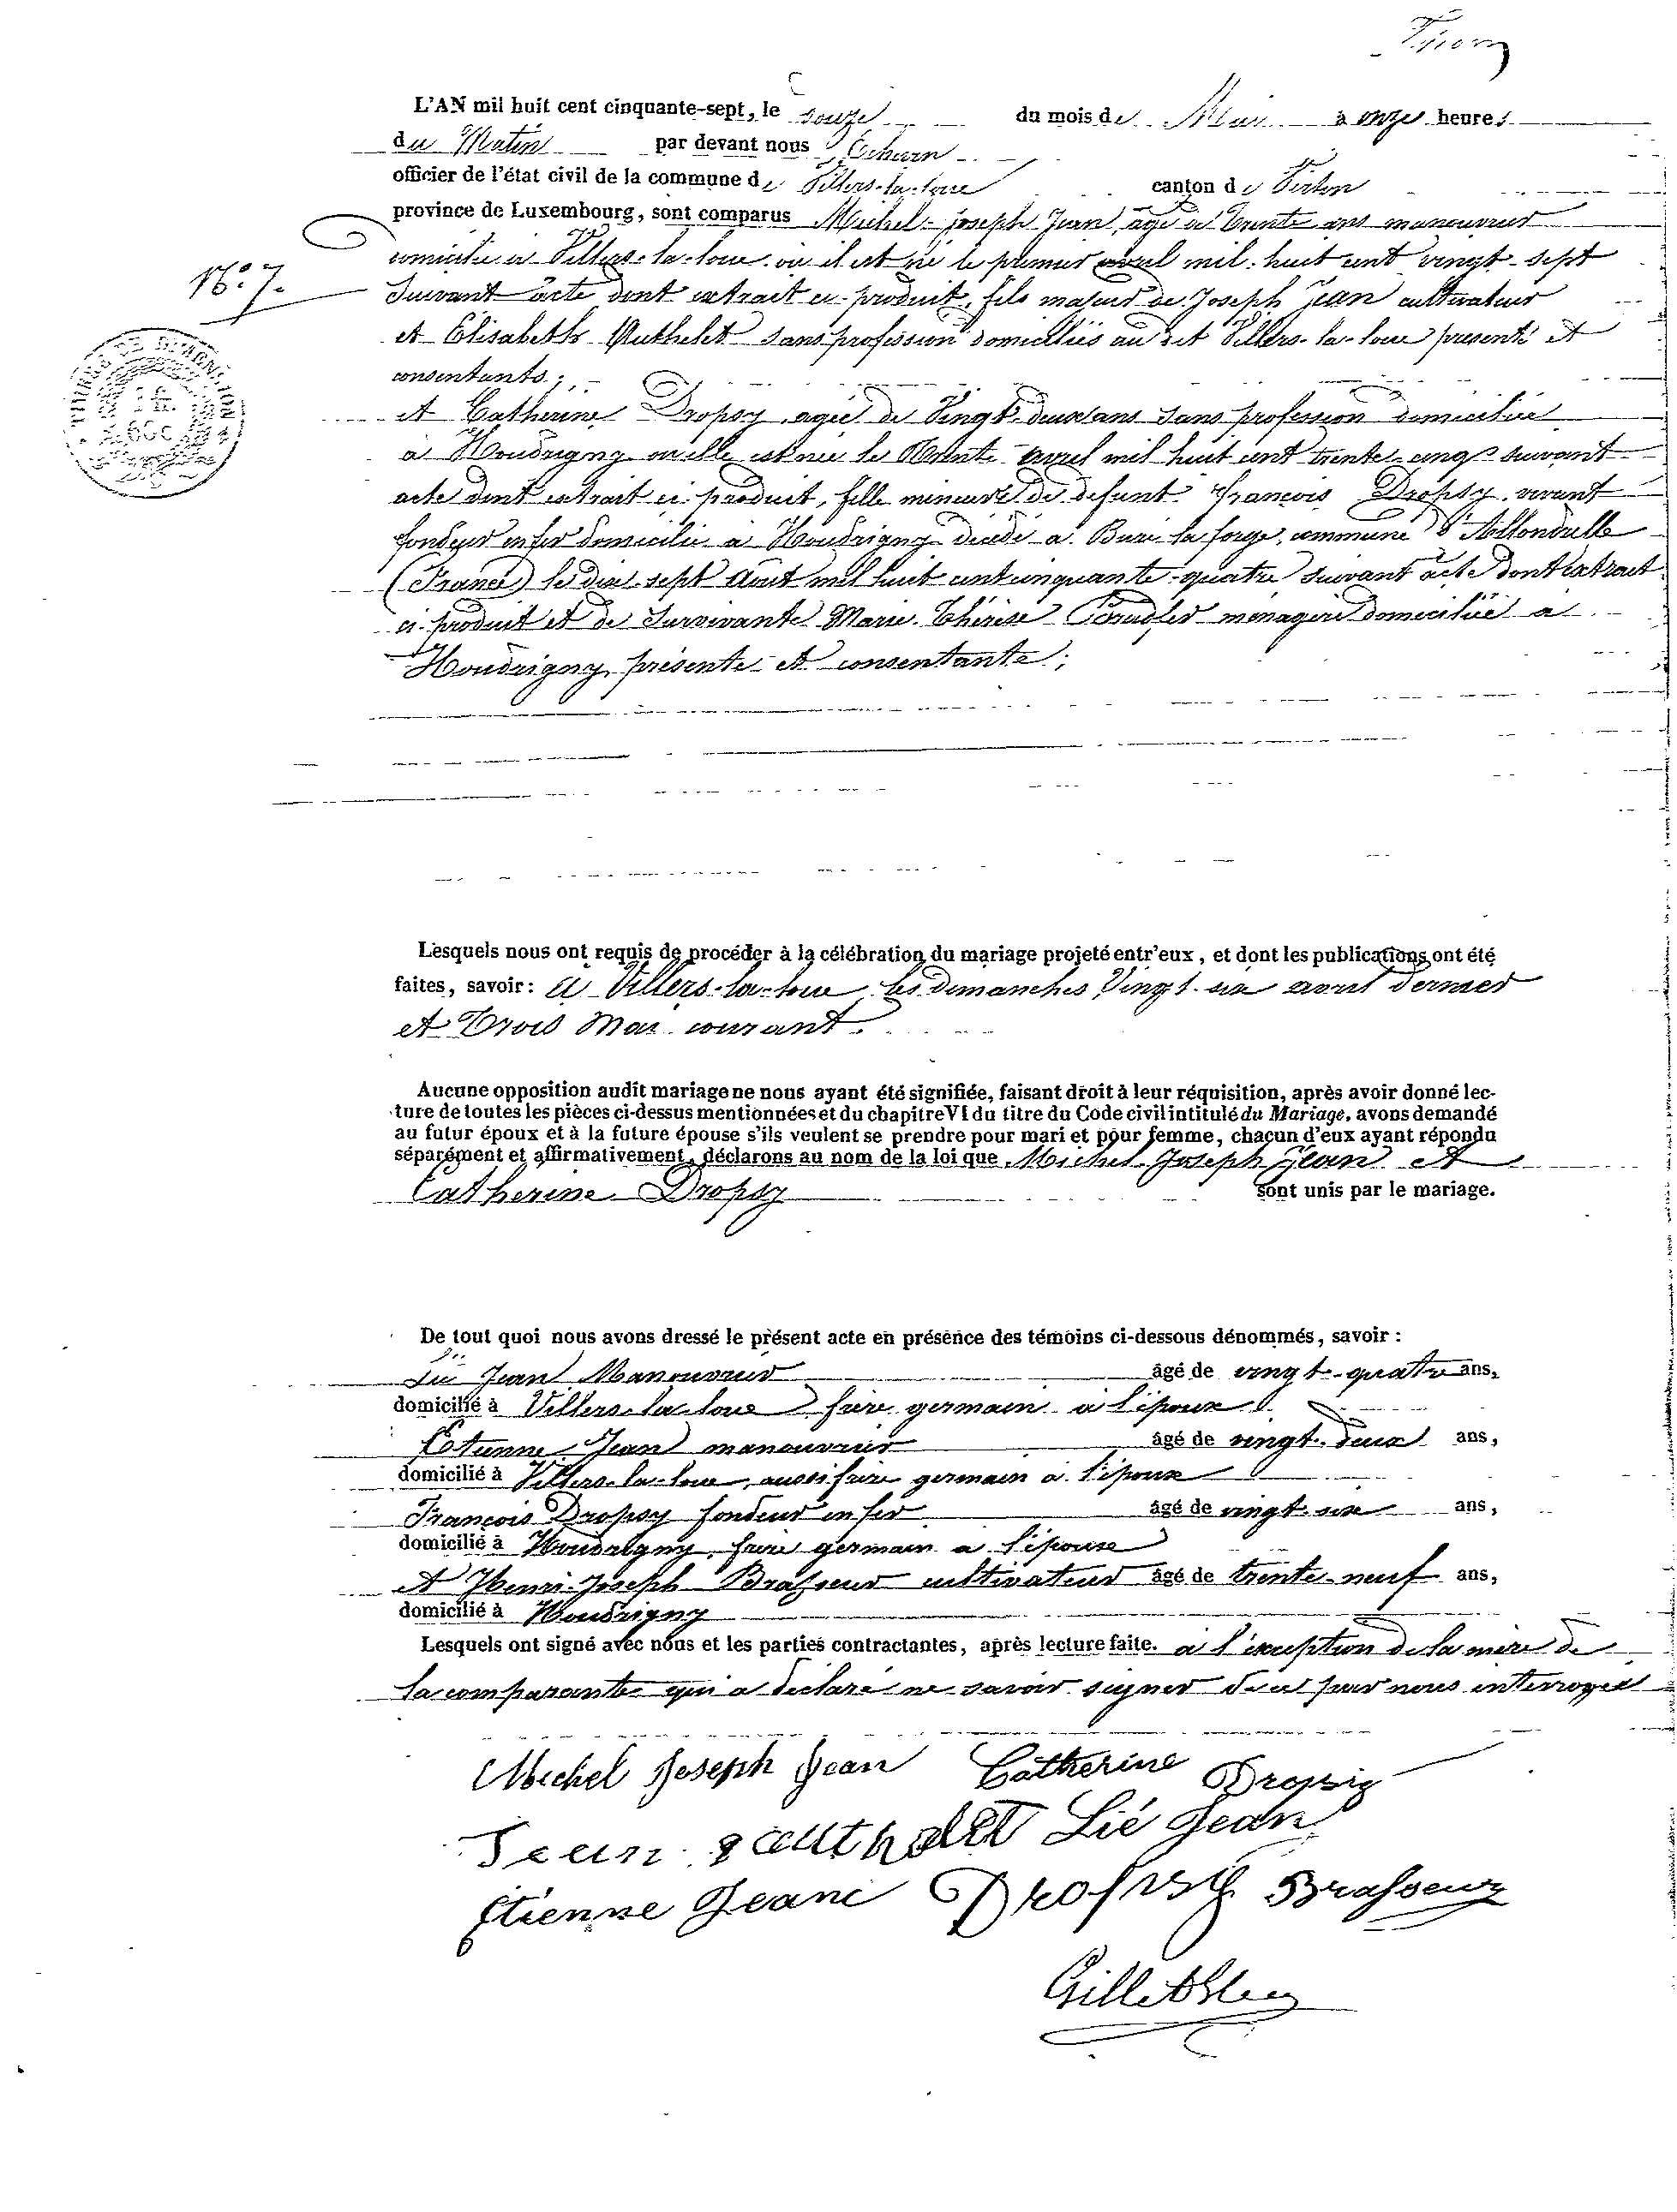 L'AN mil huit cent cinquante-sept, le douze du mois de Mai à onze heures
du Matin par devant nous
officier de l'état civil de la commune de Villers-la-loue canton de Virton
province de Luxembourg, sont comparus Michel-Joseph Jean, agé de trente ans manouvrier
domicilié à Villers-la-loue où il est né le premier avril mil-huit cent vingt-sept
N° 7.
suivant acte dont extrait ci-produit, fils majeur de Joseph Jean cultivateur
et Elisabeth Authelet sans profession domiciliés au dit Villers-la-loue présents et
consentants;
et Catherine Dropsy, agée de Vingt-deux ans sans profession domiciliée
à Houdrigny où elle est née le trente avril mil huit cent trente-cinq suivant
acte dont extrait ci-produit, fille mineure de défunt François Dropsy, vivant
fondeur en fer domicilié à Houdrigny décédé à Buré la forge, commune d'Allondrelle
(France) le dix-sept Août mil huit cent cinquante-quatre suivant acte dont extrait
ci-produit et de Survivante Marie-Thérèse ménagère domiciliée à
Houdrigny, présente et consentante;
Lesquels nous ont requis de procéder à la célébration du mariage projeté entr'eux, et dont les publications ont été
faites, savoir: à Villers-la-loue les dimanches Vingt-six avril dernier
et Trois Mai courant.
Aucune opposition audit mariage ne nous ayant été signifiée, faisant droit à leur réquisition, après avoir donné lec-
ture de toutes les pièces ci-dessus mentionnées et du chapitre VI du titre du Code civil intitulé du Mariage, avons demandé
au futur époux et à la future épouse s'ils veulent se prendre pour mari et pour femme, chacun d'eux ayant répondu
séparément et affirmativement, déclarons au nom de la loi que Michel-Joseph Jean et
Catherine Dropsy sont unis par le mariage.
De tout quoi nous avons dressé le présent acte en présence des témoins ci-dessous dénommés, savoir:
Lié Jean Manouvrier âgé de vingt-quatre ans,
domicilié à Villers-la-loue frère germain à l'époux
Etienne Jean manouvrier âgé de vingt-deux ans,
domicilié à Villers-la-loue, aussi frère germain à l'époux
François Dropsy fondeur en fer âgé de vingt-six ans,
domicilié à Houdrigny, frère germain à l'épouse
et Henri-Joseph Brasseur cultivateur âgé de trente-neuf ans,
domicilié à Houdrigny
Lesquels ont signé avec nous et les parties contractantes, après lecture faite. à l'exception de la mère de
la comparante qui a déclaré ne savoir signer de ce par nous interrogée
Michel Joseph Jean Catherine Dropsy
Jean Lié Jean
Etienne Jean Dropsy Brasseur